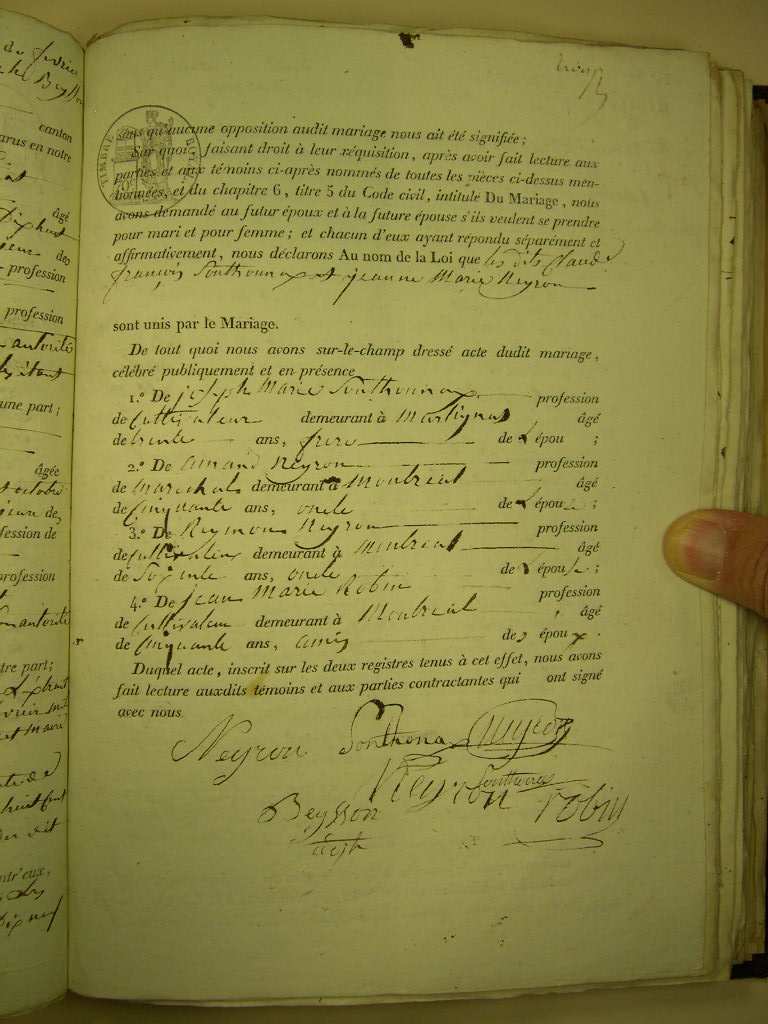 de fevrier
canton
arus en notre
âgé
des
profession
profession
autorité
une part;
âgée
octobre
fession de
profession
autorité
tre part;
entr'eux,
TIMBRE
sans qu'aucune opposition audit mariage nous ait été signifiée;
Sur quoi, faisant droit à leur réquisition, après avoir fait lecture aux
parties et aux témoins ci-après nommés de toutes les pièces ci-dessus men-
tionnées, et du chapitre 6, titre 5 du Code civil, intitulé Du Mariage, nous
avons demandé au futur époux et à la future épouse s'ils veulent se prendre
pour mari et pour femme; et chacun d'eux ayant répondu séparément et
affirmativement, nous déclarons Au nom de la Loi que les dits Claude
françois Sonthonnax et jeanne Marie Neyron
sont unis par le Mariage.
De tout quoi nous avons sur-le-champ dressé acte dudit mariage,
célébré publiquement et en présence
1.º De joseph Marie Sonthonnax profession
de Cultivateur demeurant à Martignat âgé
de trente ans, frere de L'épou ;
2.º De amand Neyron profession
de marechal demeurant à Montreal âgé
de Cinquante ans, oncle de L'épouse ;
3.º De Reymond Neyron profession
de cultivateur demeurant à Montreal âgé
de Soixante ans, oncle de L'épouse ;
4.º De jean Marie Robin profession
de Cultivateur demeurant à Montreal âgé
de Cinquante ans, amis des époux .
Duquel acte, inscrit sur les deux registres tenus à cet effet, nous avons
fait lecture auxdits témoins et aux parties contractantes qui ont signé
avec nous
Neyron Sonthonax Neyron
Neyron Sonthonax
Beysson robin
adjt